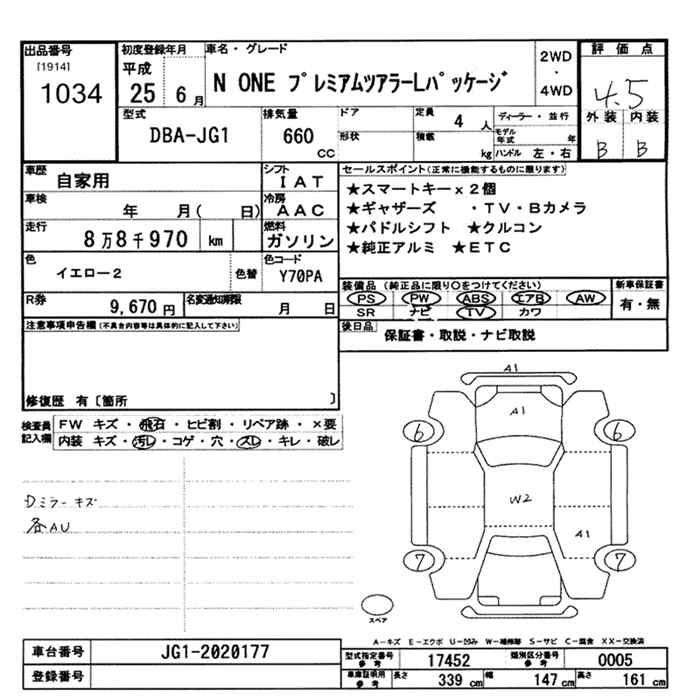 出品番号
[1914]
1034
初度登録年月
平成
25 6月
車名・グレード
N ONE プレミアムツアラーLパッケージ
2WD
・
4WD
評価点
4.5
外装 内装
B B
型式
DBA-JG1
排気量
660
cc
ドア
形状
定員
4 人
積載
kg
ディーラー・並行
モデル年式 年
ハンドル 左・右
車歴
自家用
シフト
IAT
車検
年 月( 日)
冷房
AAC
走行
8万8千970 km
燃料
ガソリン
色
イエロー2
色替
色コード
Y70PA
R券
9,670 円
名変通知期限
月 日
セールスポイント(正常に機能するものに限ります)
★スマートキーx2個
★ギャザーズ ・TV・Bカメラ
★パドルシフト ★クルコン
★純正アルミ ★ETC
装備品 (純正品に限り○をつけてください)
PS PW ABS エアB AW
SR ナビ TV カワ
新車保証書
有・無
後日品
保証書・取説・ナビ取説
注意事項申告欄(不具合内容等は具体的に記入して下さい)
修復歴 有〔箇所 〕
検査員
記入欄
FW キズ・飛石・ヒビ割・リペア跡・×要
内装 キズ・汚レ・コゲ・穴・スレ・キレ・破レ
Dミラーキズ
各AU
A1
A1
6 6
W2
A1
7 7
スペア
A-キズ E-エクボ U-凹み W-補修跡 S-サビ C-腐食 XX-交換済
車台番号
JG1-2020177
登録番号
型式指定番号
参考
17452
類別区分番号
参考
0005
車庫証明用
参考
長さ 339 cm
幅 147 cm
高さ 161 cm